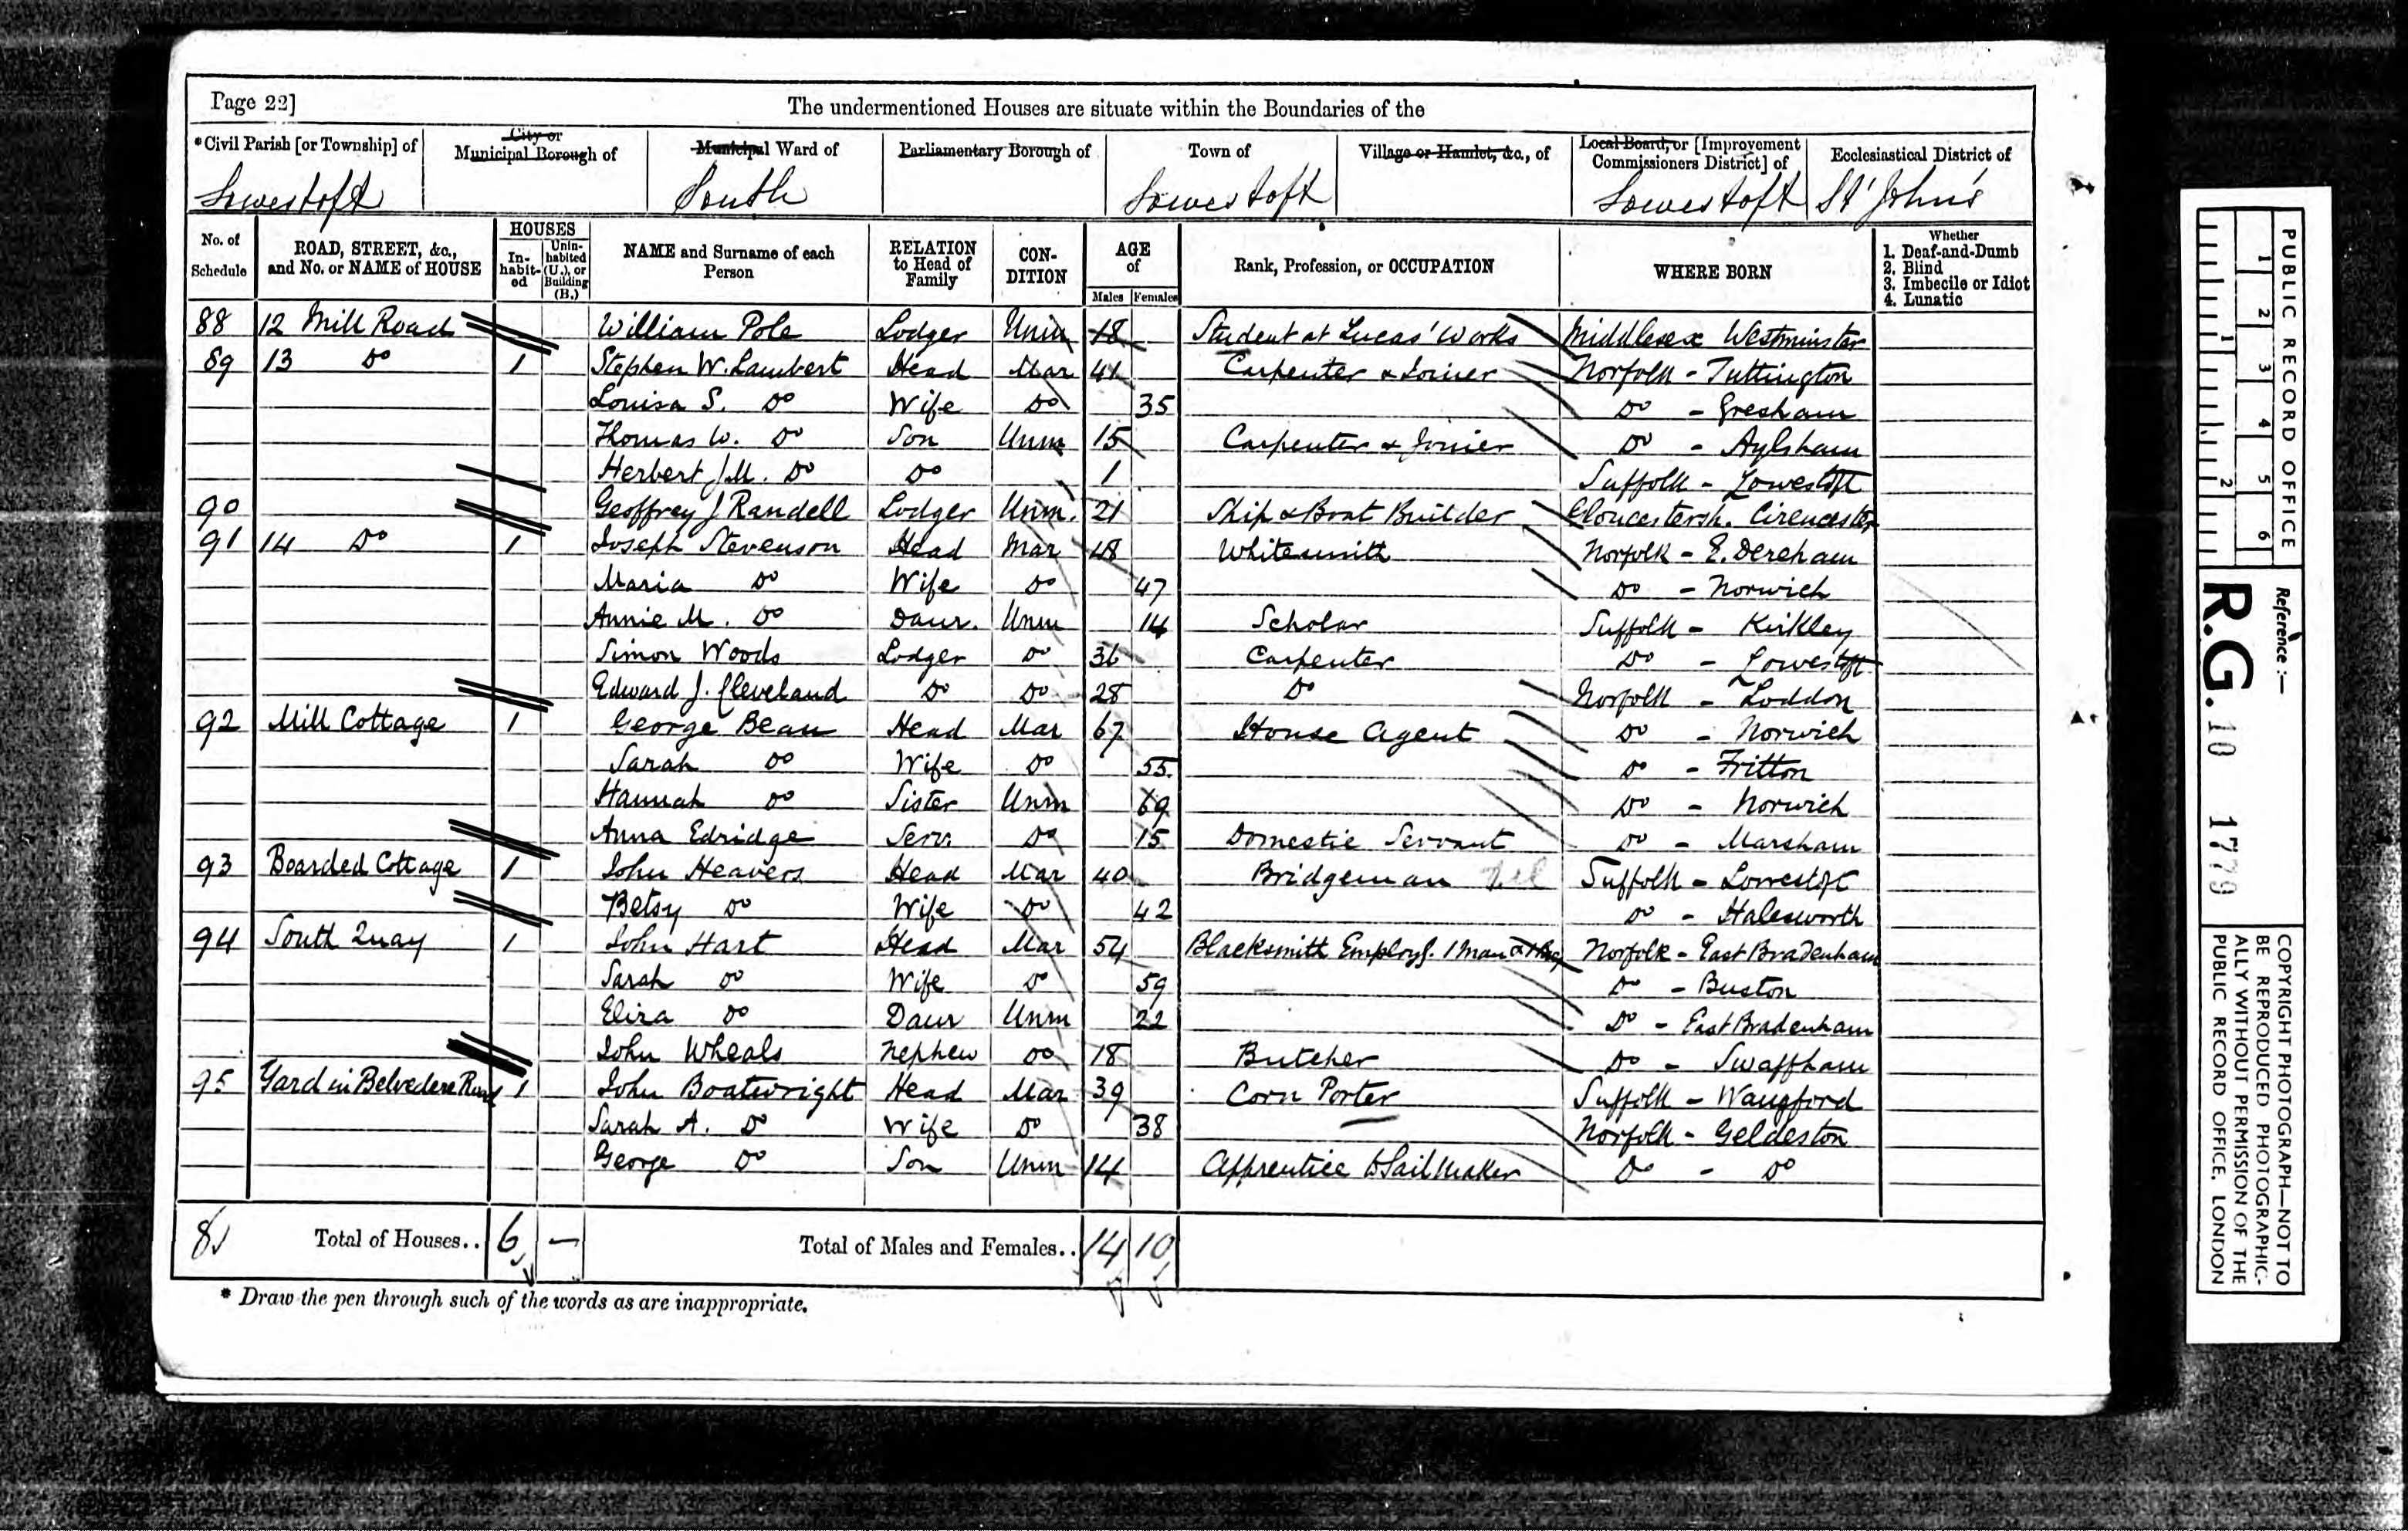 Page 22]
The undermentioned Houses are situate within the Boundaries of the
*Civil Parish [or Township] of City or Municipal Borough of Municipal Ward of Parliamentary Borough of Town of Village or Hamlet, &c., of Local Board, or [Improvement Commissioners District] of Ecclesiastical District of
Lowestoft South Lowestoft Lowestoft St John's
No. of Schedule ROAD, STREET, &c., and No. or NAME of HOUSE HOUSES Inhabited Uninhabited (U.), or Building (B.) NAME and Surname of each Person RELATION to Head of Family CONDITION AGE of Males Females Rank, Profession, or OCCUPATION WHERE BORN Whether 1. Deaf-and-Dumb 2. Blind 3. Imbecile or Idiot 4. Lunatic
88 12 Mill Road William Pole Lodger Unm 18 Student at Lucas' Works Middlesex Westminster
89 13 Do 1 Stephen W. Lambert Head Mar 41 Carpenter & Joiner Norfolk - Tuttington
Louisa S. Do Wife Do 35 Do - Gresham
Thomas W. Do Son Unm 15 Carpenter & Joiner Do - Aylsham
Herbert J.M. Do Do 1 Suffolk - Lowestoft
90 Geoffrey J Randell Lodger Unm. 21 Ship & Boat Builder Gloucestersh. Cirencester
91 14 Do 1 Joseph Stevenson Head Mar 48 Whitesmith Norfolk - E. Dereham
Maria Do Wife Do 47 Do - Norwich
Annie M. Do Daur. Unm 14 Scholar Suffolk - Kirkley
Simon Woods Lodger Do 36 Carpenter Do - Lowestoft
Edward J. Cleveland Do Do 28 Do Norfolk - Loddon
92 Mill Cottage 1 George Bean Head Mar 67 House Agent Do - Norwich
Sarah Do Wife Do 55 Do - Fritton
Hannah Do Sister Unm 69 Do - Norwich
Anna Edridge Serv. Do 15 Domestic Servant Do - Marsham
93 Boarded Cottage 1 John Heavers Head Mar 40 Bridgeman Suffolk - Lowestoft
Betsy Do Wife Do 42 Do - Halesworth
94 South Quay 1 John Hart Head Mar 54 Blacksmith Employg. 1 Man & 1 Boy Norfolk - East Bradenham
Sarah Do Wife Do 59 Do - Buston
Eliza Do Daur Unm 22 Do - East Bradenham
John Wheals Nephew Do 18 Butcher Do - Swaffham
95 Yard in Belvedere Road 1 John Boatwright Head Mar 39 Corn Porter Suffolk - Wangford
Sarah A. Do Wife Do 38 Norfolk - Geldeston
George Do Son Unm 14 Apprentice to Sail Maker Do - Do
8 Total of Houses.. 6 — Total of Males and Females.. 14 10
* Draw the pen through such of the words as are inappropriate.
PUBLIC RECORD OFFICE
1 2 3 4 5 6
1 2
Reference :-
R.G. 10 1779
COPYRIGHT PHOTOGRAPH—NOT TO
BE REPRODUCED PHOTOGRAPHIC-
ALLY WITHOUT PERMISSION OF THE
PUBLIC RECORD OFFICE, LONDON